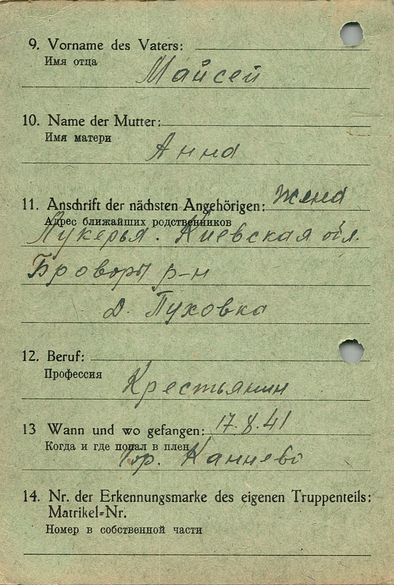 9. Vorname des Vaters:
Имя отца
Майсей
10. Name der Mutter:
Имя матери
Анна
11. Anschrift der nächsten Angehörigen: жена
Адрес ближайших родственников
Лукерья. Киевская обл.
Броворы р-н
д. Пуховка
12. Beruf:
Профессия
Крестьянин
13 Wann und wo gefangen: 17.8.41
Когда и где попал в плен
гор. Каннево
14. Nr. der Erkennungsmarke des eigenen Truppenteils:
Matrikel=Nr.
Номер в собственной части